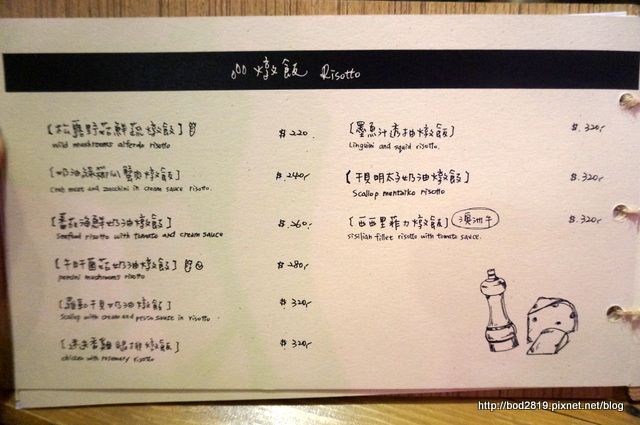 燉飯 Risotto
【松露野菇鮮蔬燉飯】 $.220.
wild mushrooms alfredo risotto
【奶油櫛瓜蟹肉燉飯】 $.240,-
Crab meat and zucchini in cream sauce risotto.
【蕃茄海鮮奶油燉飯】 $.260,-
Seafood risotto with tomato and cream sauce
【牛肝菌菇奶油燉飯】 $.280,-
porcini mushrooms risotto
【羅勒干貝奶油燉飯】 $.320,-
Scallop with cream and pesto sauce in risotto
【迷迭香雞腿排燉飯】 $.320,-
chicken with rosemary risotto
【墨魚汁透抽燉飯】 $.320,-
Linguini and squid risotto.
【干貝明太子奶油燉飯】 $.320,-
Scallop mentaiko risotto
【西西里菲力燉飯】 澳洲牛 $.320,-
sisilian fillet risotto with tomato sauce.
http://bod2819.pixnet.net/blog